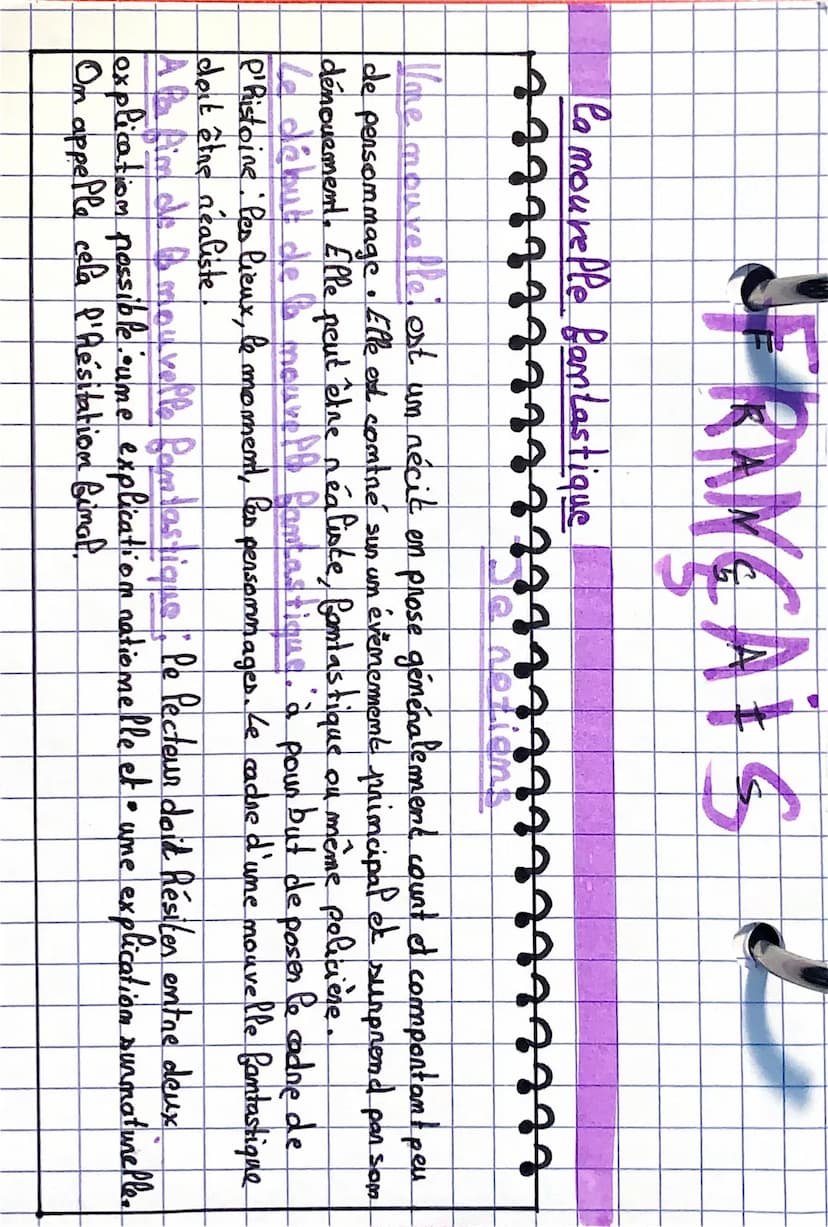 FRANÇAIS
FRANÇAIS
la nouvelle fantastique
Je retiens
Une nouvelle: est un récit en prose généralement court et comportant peu
de personnage. Elle est contré sur un évènement principal et surprend par son
dénouement. Elle peut être réaliste, fantastique ou même policière.
Le début de la nouvelle fantastique: à pour but de poser le cadre de
l'histoire: les lieux, le moment, les personnages. Le cadre d'une nouvelle fantastique
doit être réaliste.
A la fin de la nouvelle fantastique: le lecteur doit hésiter entre deux
explication possible: • une explication rationnelle et • une explication surnaturelle.
On appelle cela l'hésitation final.